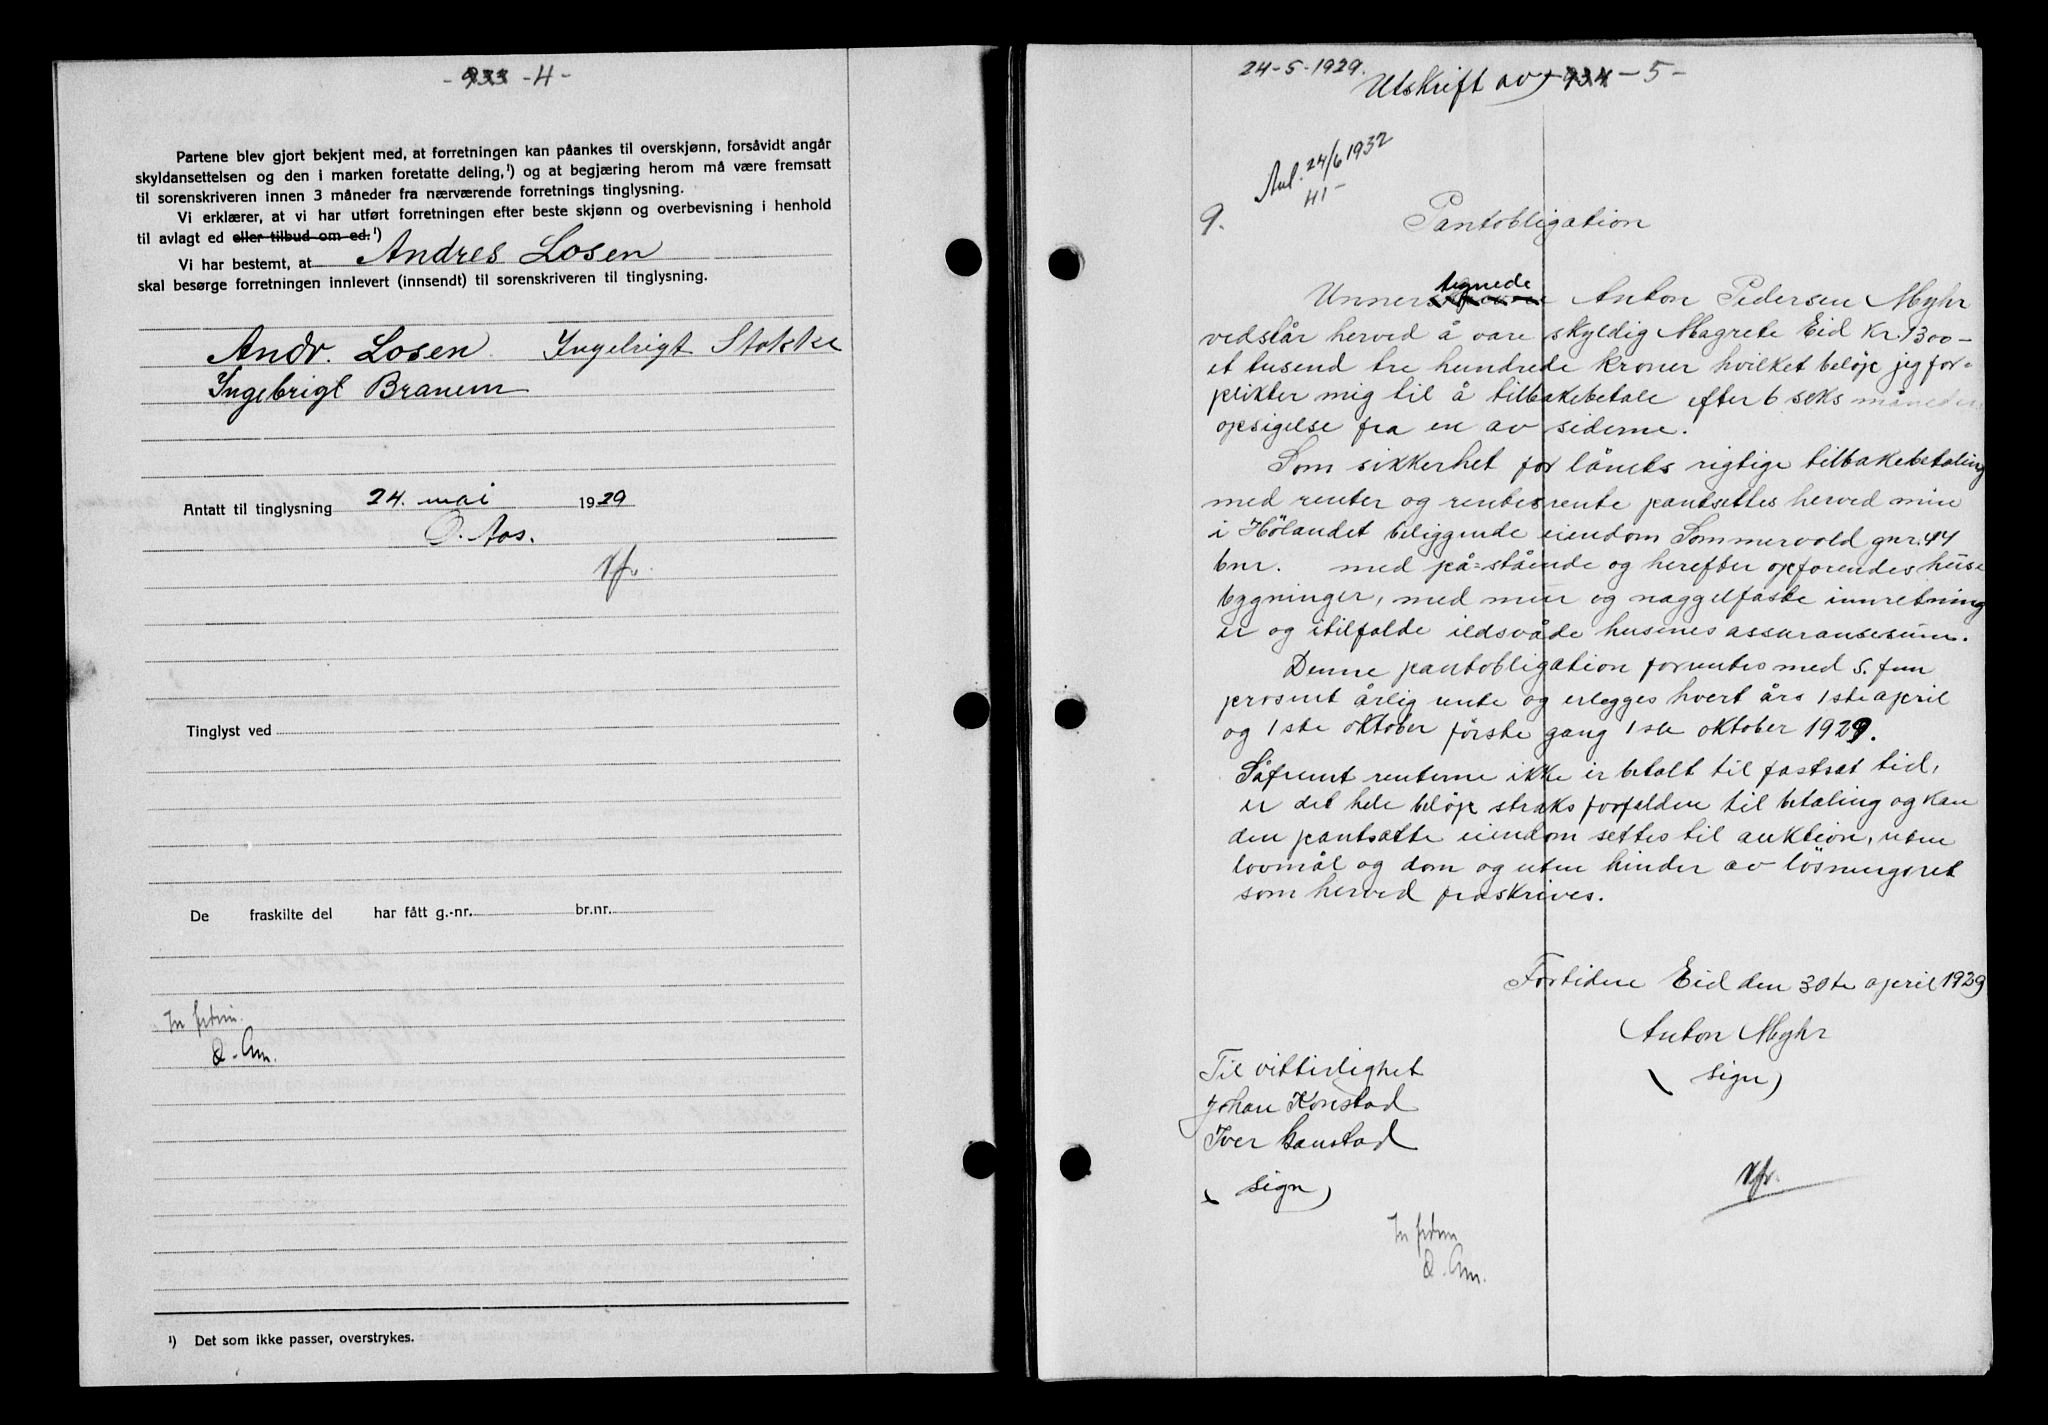 - 933 - 4 -
Partene blev gjort bekjent med, at forretningen kan påankes til overskjønn, forsåvidt angår
skyldansettelsen og den i marken foretatte deling,¹) og at begjæring herom må være fremsatt
til sorenskriveren innen 3 måneder fra nærværende forretnings tinglysning.
Vi erklærer, at vi har utført forretningen efter beste skjønn og overbevisning i henhold
til avlagt ed eller tilbud om ed.¹)
Vi har bestemt, at Andres Losen
skal besørge forretningen innlevert (innsendt) til sorenskriveren til tinglysning.
Andr. Losen. Ingebrigt Stokke
Ingebrigt Branem
Antatt til tinglysning 24. mai 1929
O. Aas.
Tinglyst ved
De fraskilte del har fått g.-nr. br.nr.
¹) Det som ikke passer, overstrykes.
24-5-1929. Utskrift av 934 - 5 -
Avl. 24/6 1932
41-
9. Pantobligation
Unner tegnede Anton Pedersen Myhr
vedstår herved å være skyldig Magrete Eid Kr. 1300 -
et tusend tre hundrede kroner hvilket beløp jeg for=
plikter mig til å tilbakebetale efter 6 seks måneders
opsigelse fra en av siderne.
Som sikkerhet for lånets rigtige tilbakebetaling
med renter og rentesrente pantsettes herved min
i Hölandet beliggende eiendom Sommervold gnr. 44
bnr. med på=stående og herefter opførendes huse
bygninger, med mur og naggelfaste innretning
er og itilfalde ildsvåde husenes assuransesum.
Denne pantobligation forrentes med 5. fem
prosent årlig rente og erlegges hvert års 1ste april
og 1ste oktober første gang 1ste oktober 1929.
Såfremt renterne ikke er betalt til fastsat tid,
er det hele beløp straks forfalden til betaling og kan
den pantsatte eiendom settes til auktion, uten
lovmål og dom og uten hinder av løsningsret
som herved fraskrives.
Fortiden Eid den 30te april 1929
Anton Myhr
(sign)
Til vitterlighet
Johan Konstad
Iver Gaustad
(sign)